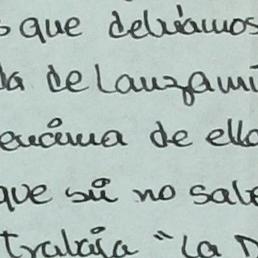 o que debíamos
la de lanzami
encima de ello
que si no sale
trabaja "la